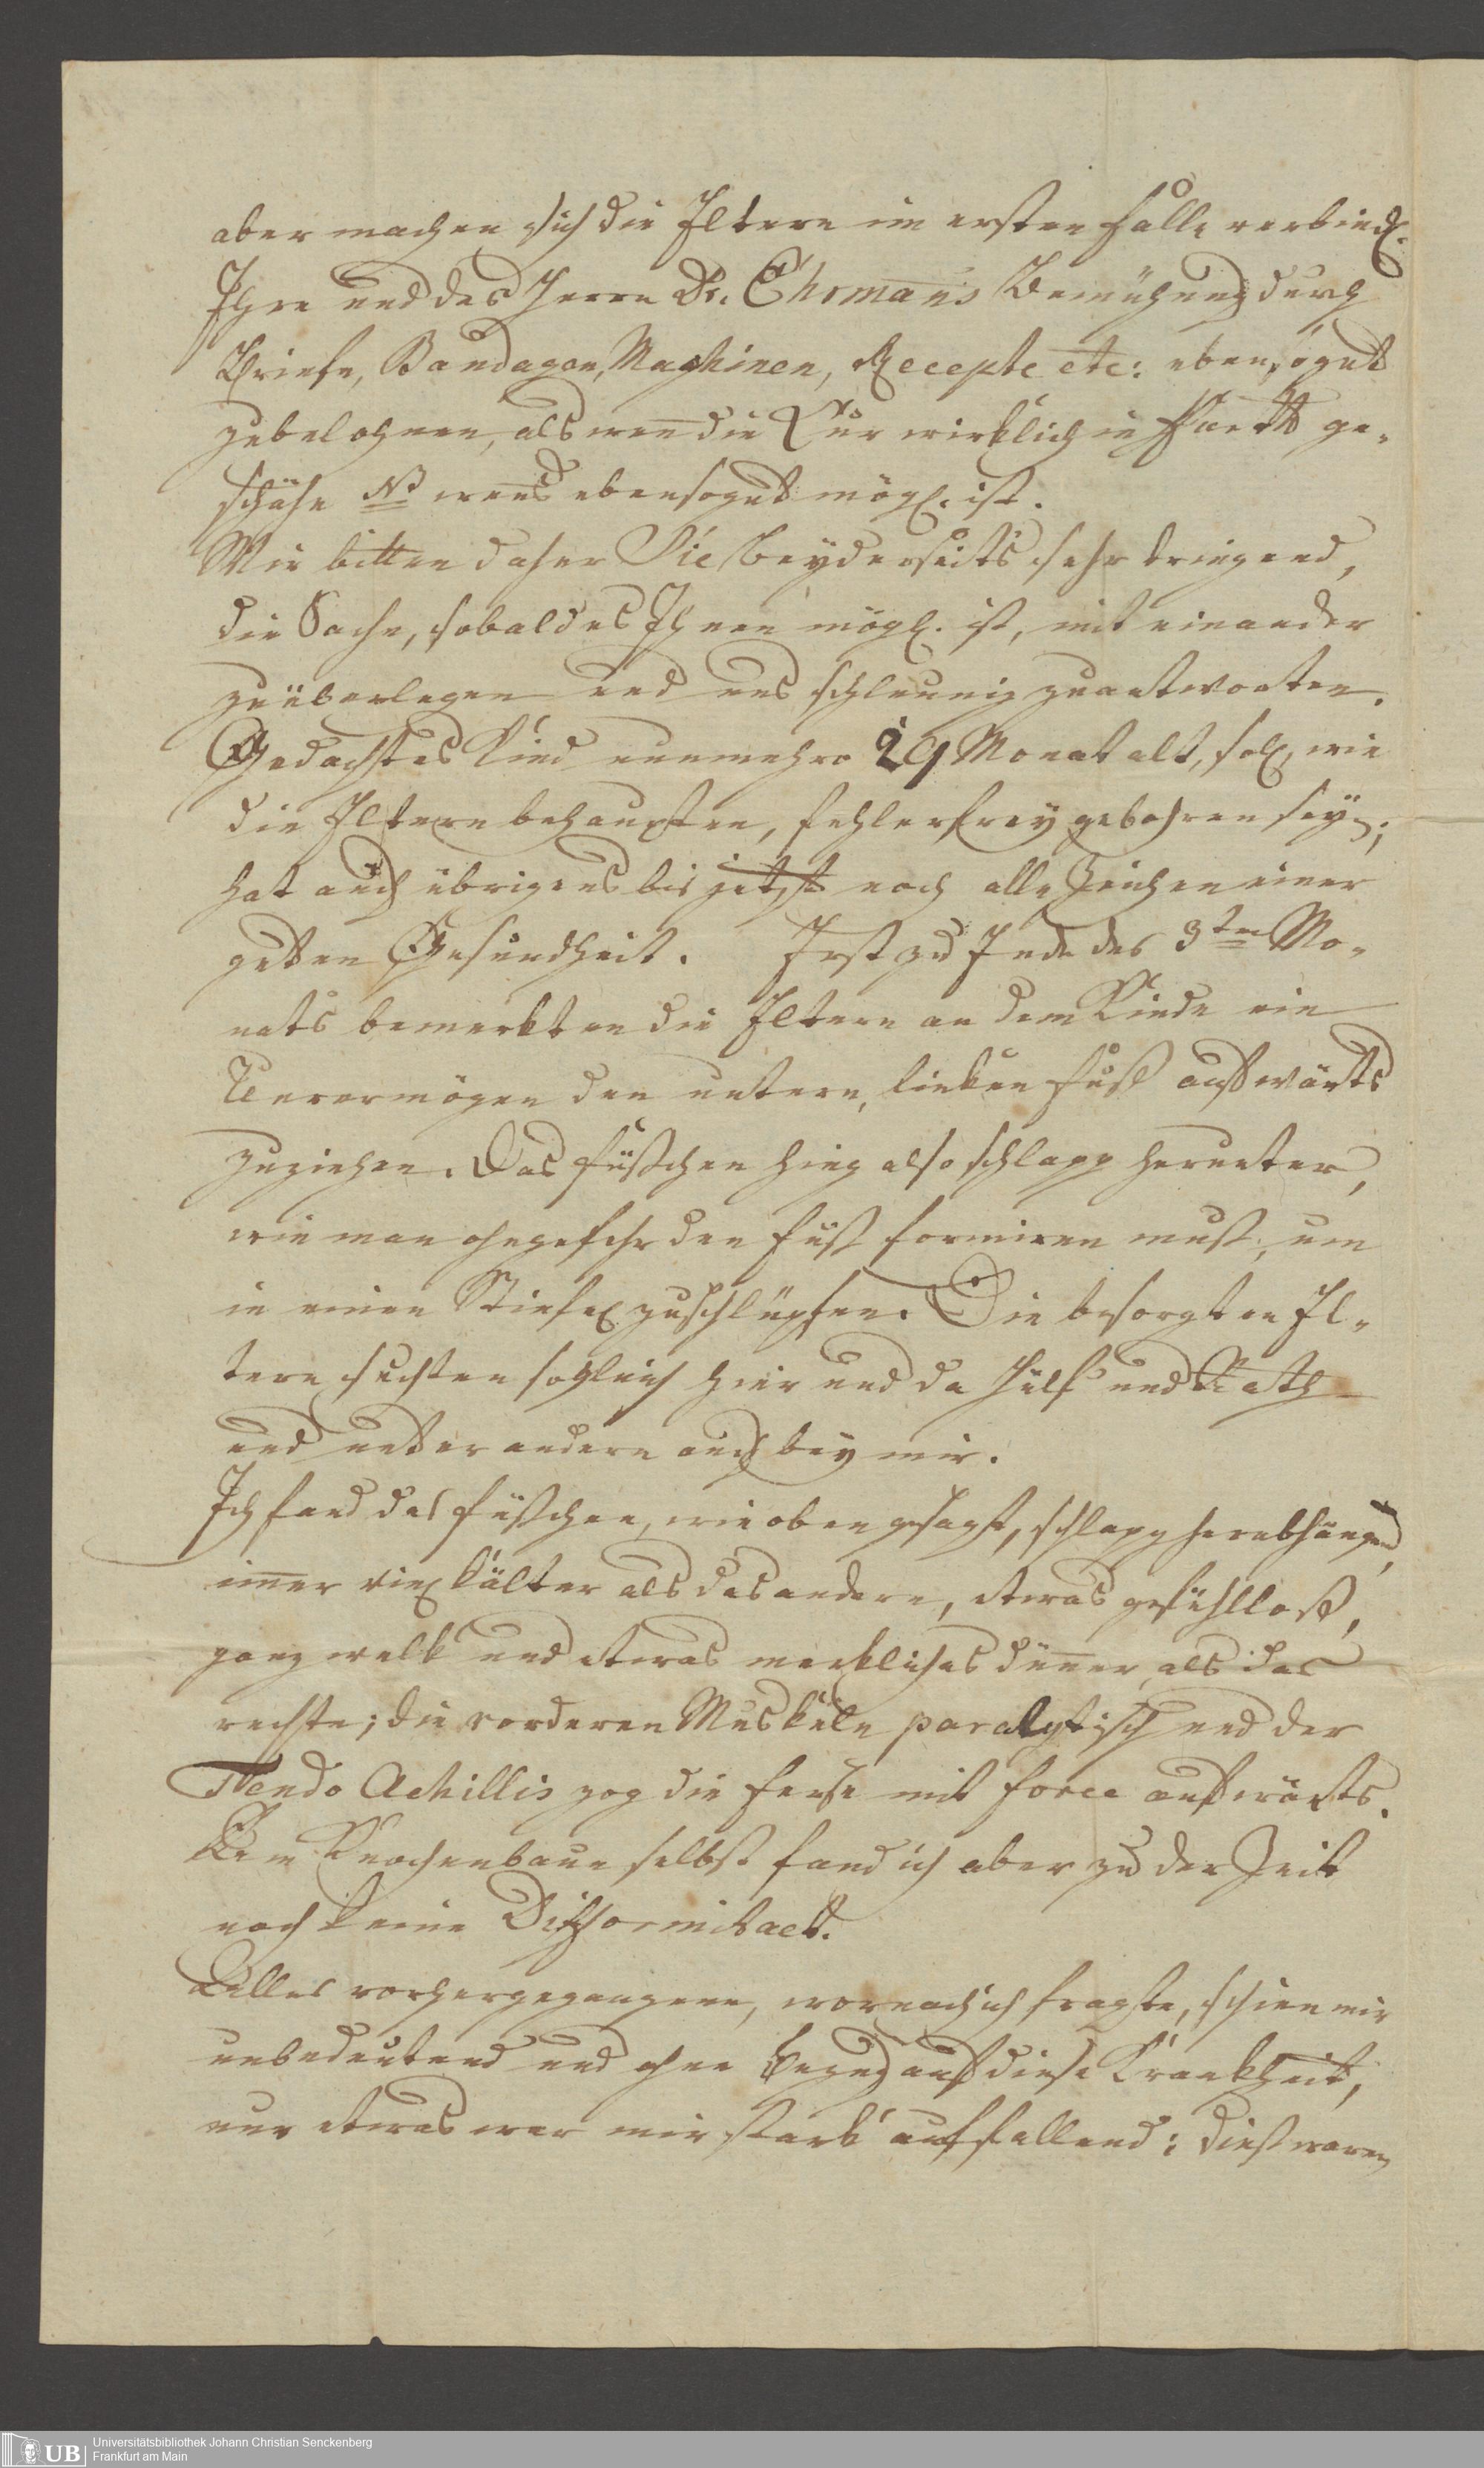 aber machen sich die Eltern im ersten Falle verbindl.
Ihre und des Herrn Dr. Ehrmans Bemühung durch
Briefe, Bandagen, Maschinen, Recepte etc: ebensogut
zubelohnen, als wen̄ die Cur wirklich in ge-
schähe NB wen̄s ebensogut mögl. ist.
Wir bitten daher Sie beyderseits sehr dringend,
die Sache, sobald es Ihnen mögl. ist, mit einander
zuüberlegen und uns schleunig zuantworten.
Gedachtes Kind nunmehro 29 Monat alt, soll, wie
die Eltern behaupten, fehlerfrey gebohren seyn;
hat auch übrigens bis jetzt noch alle Zeichen einer
guten Gesundheit. Erst zu Ende des 3ten Mo-
nats bemerkten die Eltern an dem Kinde ein
Unvermögen den untern, linken Fuß aufwärts
zuziehen. Das Füßchen hing also schlapp herunter,
wie man ohngefehr den Fuß formiren muß, um
in einen Stiefel zuschlüpfen. Die besorgten El-
tern suchten sogleich hier und da Hülf und Rath
und unter andern auch bey mir.
Ich fand das Füßchen, wie oben gesagt, schlapp herabhängend,
im̄er viel kälter als das andere, etwas gefühlloß,
ganz welk und etwas merkliches dün̄er, als das
rechte; die vorderen Muskeln paralytisch und der
Tendo Achillis zog die Ferse mit force aufwärts.
Am Knochenbaue selbst fand ich aber zu der Zeit
noch keine Difformitaet.
Alles vorhergegangene, wornach ich fragte, schien mir
unbedeutend und ohne Bezug auf diese Krankheit,
nur etwas war mir stark auffallend: dieß waren
UB Universitätsbibliothek Johann Christian Senckenberg
Frankfurt am Main